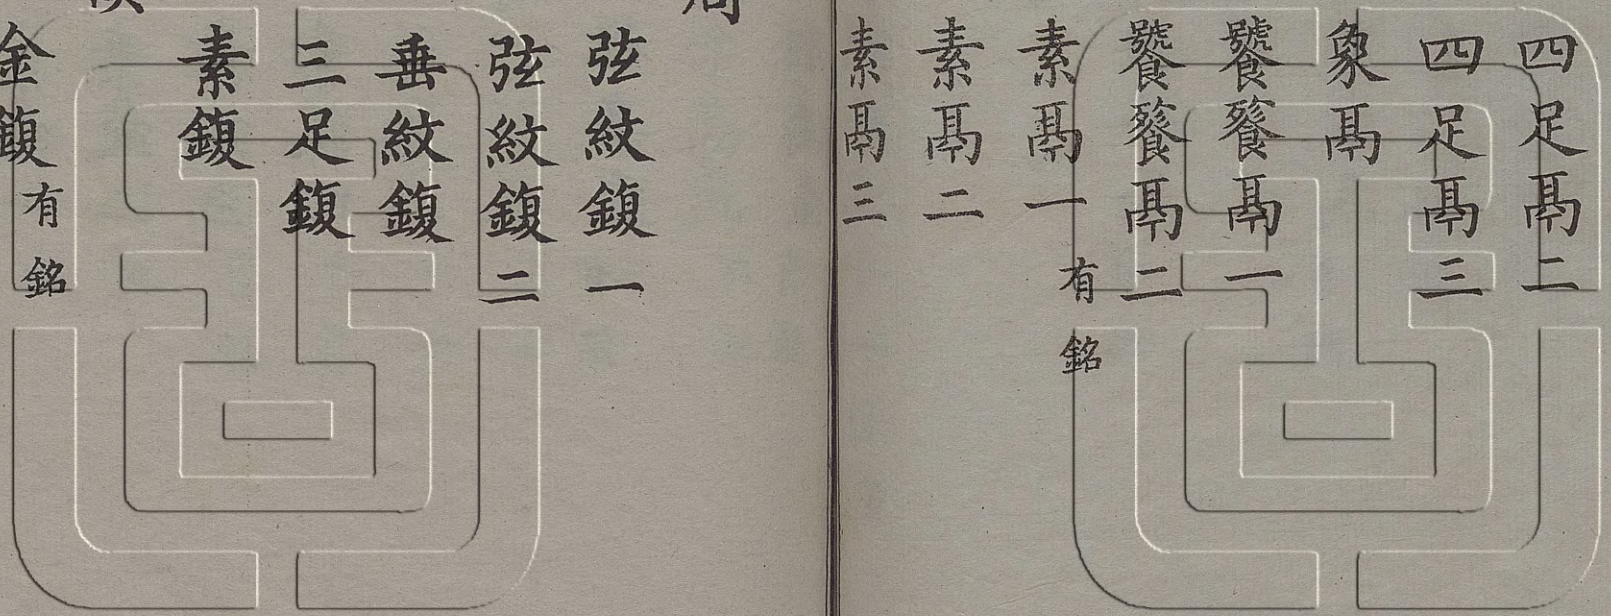 四足鬲二
四足鬲三
象鬲
饕餮鬲一
饕餮鬲二
素鬲一 有銘
素鬲二
素鬲三
周
弦紋鍑一
弦紋鍑二
垂紋鍑
三足鍑
素鍑
金鍑 有銘